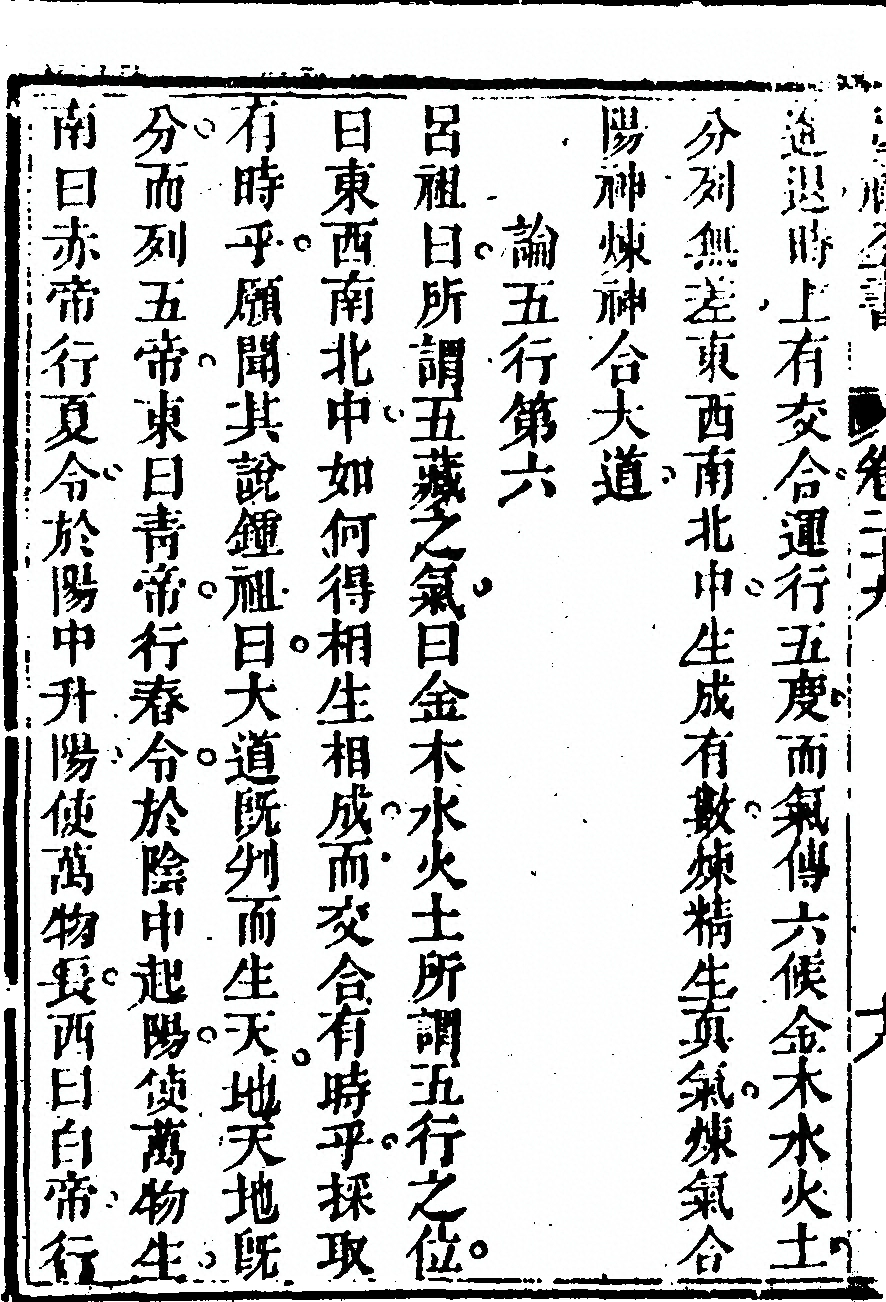 進退時上有交合運行五度而氣傳六候金木水火土
分列無差東西南北中生成有數煉精生真氣煉氣合
陽神煉神合大道
論五行第六
呂祖曰所謂五藏之氣曰金木水火土所謂五行之位
曰東西南北中如何得相生相成而交合有時乎採取
有時乎願聞其說鍾祖曰大道既判而生天地天地既
分而列五帝東曰青帝行春令於陰中起陽使萬物生
南曰赤帝行夏令於陽中升陽使萬物長西曰白帝行